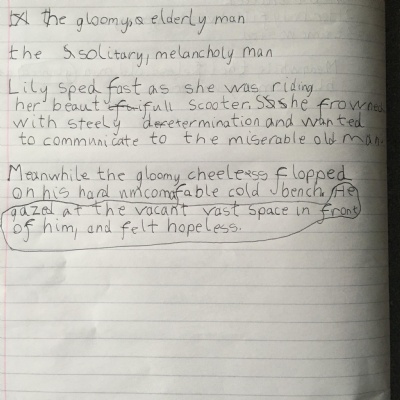 the gloomy, elderly man
the solitary, melancholy man
Lily sped fast as she was riding
her beautifull scooter. She frowned
with steely determination and wanted
to communicate to the miserable old man.
Meanwhile the gloomy cheeless flopped
on his hard cold bench. He
gazed at the vacant vast space in front
of him, and felt hopeless.